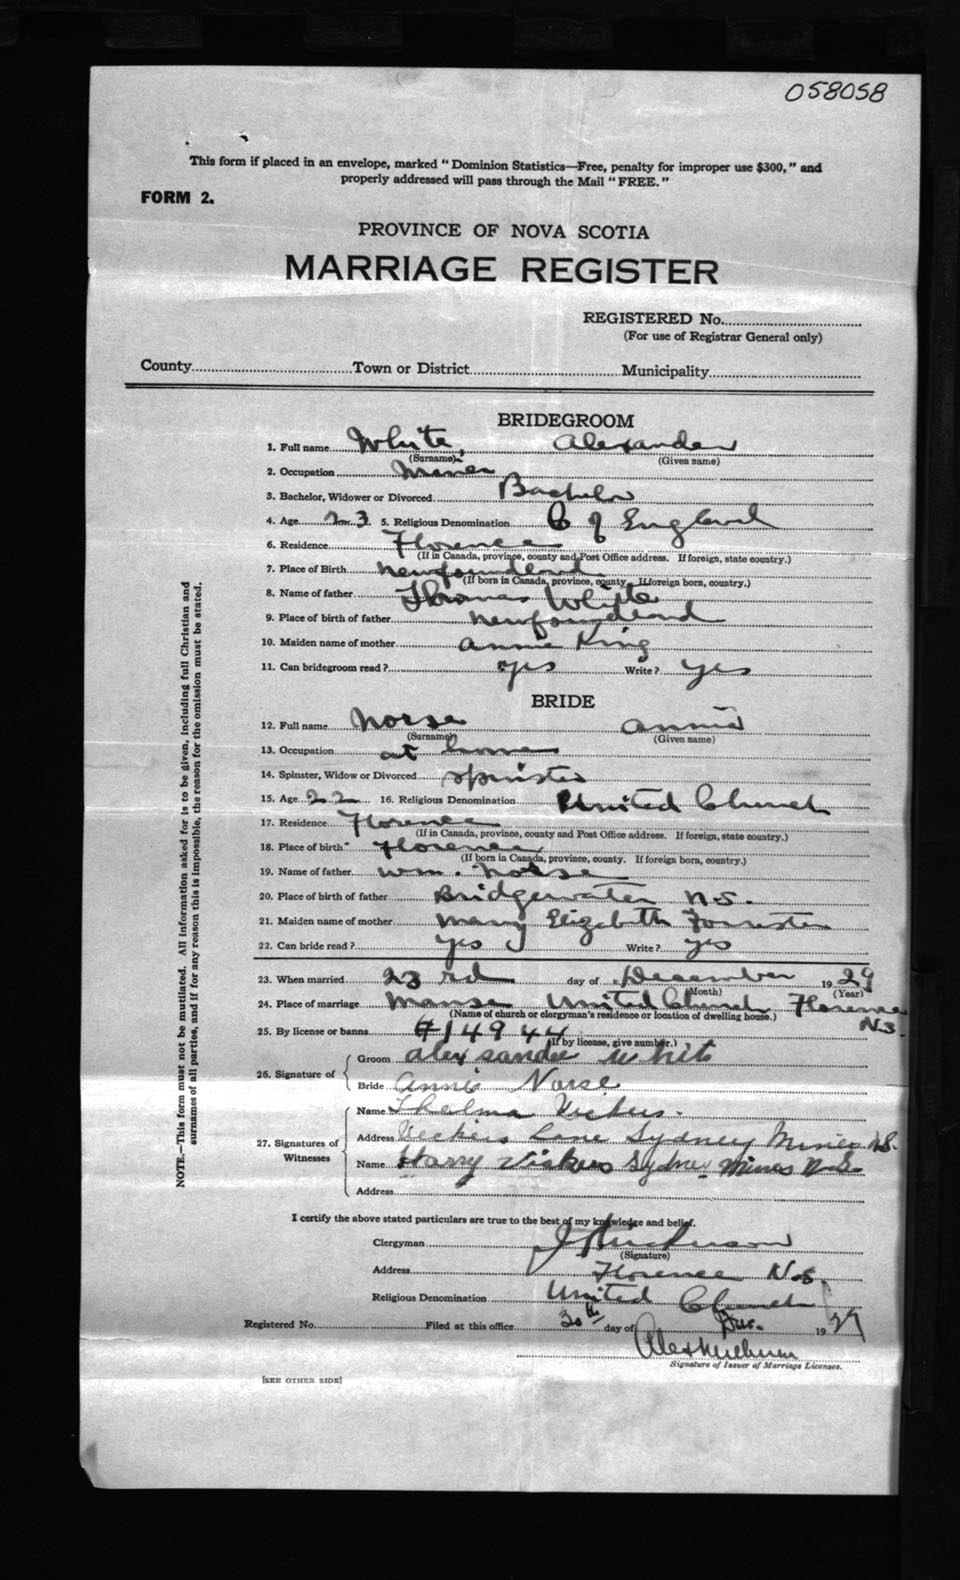 058058
This form if placed in an envelope, marked "Dominion Statistics—Free, penalty for improper use $300," and
properly addressed will pass through the Mail "FREE."
FORM 2.
PROVINCE OF NOVA SCOTIA
MARRIAGE REGISTER
REGISTERED No.
(For use of Registrar General only)
County Town or District Municipality
BRIDEGROOM
1. Full name White, Alexander
(Surname) (Given name)
2. Occupation Miner
3. Bachelor, Widower or Divorced Bachelor
4. Age 23 5. Religious Denomination C of England
6. Residence Florence
(If in Canada, province, county and Post Office address. If foreign, state country.)
7. Place of Birth Newfoundland
(If born in Canada, province, county. If foreign born, country.)
8. Name of father Thomas White
9. Place of birth of father Newfoundland
10. Maiden name of mother Annie King
11. Can bridegroom read? yes Write? yes
BRIDE
12. Full name Norse Annie
(Surname) (Given name)
13. Occupation at home
14. Spinster, Widow or Divorced spinster
15. Age 22 16. Religious Denomination United Church
17. Residence Florence
(If in Canada, province, county and Post Office address. If foreign, state country.)
18. Place of birth Florence
(If born in Canada, province, county. If foreign born, country.)
19. Name of father Wm. Norse
20. Place of birth of father Bridgewater N.S.
21. Maiden name of mother Mary Elizabeth Forrester
22. Can bride read? yes Write? yes
23. When married 23rd day of December 1929
(Month) (Year)
24. Place of marriage Manse United Church Florence
(Name of church or clergyman's residence or location of dwelling house.) N.S.
25. By license or banns #14944
(If by license, give number.)
26. Signature of
Groom Alexsander White
Bride Annie Norse
27. Signatures of Witnesses
Name Thelma Vickers.
Address Vickers Lane Sydney Mines N.S.
Name Harry Vickers Sydney Mines N.S.
Address
I certify the above stated particulars are true to the best of my knowledge and belief.
Clergyman
(Signature)
Address Florence N.S.
Religious Denomination United Church
Registered No. Filed at this office 30th day of Dec. 1929
Signature of Issuer of Marriage Licenses.
[SEE OTHER SIDE]
NOTE.—This form must not be mutilated. All information asked for is to be given, including full Christian and
surnames of all parties, and if for any reason this is impossible, the reason for the omission must be stated.